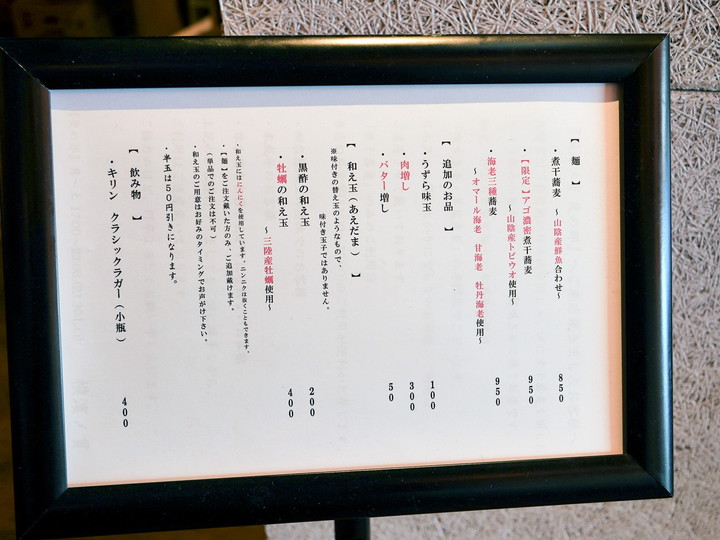 【 麺 】
・煮干蕎麦 ～山陰産鮮魚合わせ～ 850
・【限定】アゴ濃密煮干蕎麦 950
～山陰産トビウオ使用～
・海老三種蕎麦 950
～オマール海老 甘海老 牡丹海老使用～
【 追加のお品 】
・うずら味玉 100
・肉増し 300
・バター増し 50
【 和え玉（あえだま） 】
※味付きの替え玉のようなもので、
味付き玉子ではありません。
・黒酢の和え玉 200
・牡蠣の和え玉 400
～三陸産牡蠣使用～
・和え玉にはにんにくを使用しています。ニンニクは抜くこともできます。
・【麺】をご注文戴いた方のみ、ご追加戴けます。
（単品でのご注文は不可）
・和え玉のご用意はお好みのタイミングでお声がけ下さい。
・半玉は50円引きになります。
【 飲み物 】
・キリン クラシックラガー（小瓶） 400